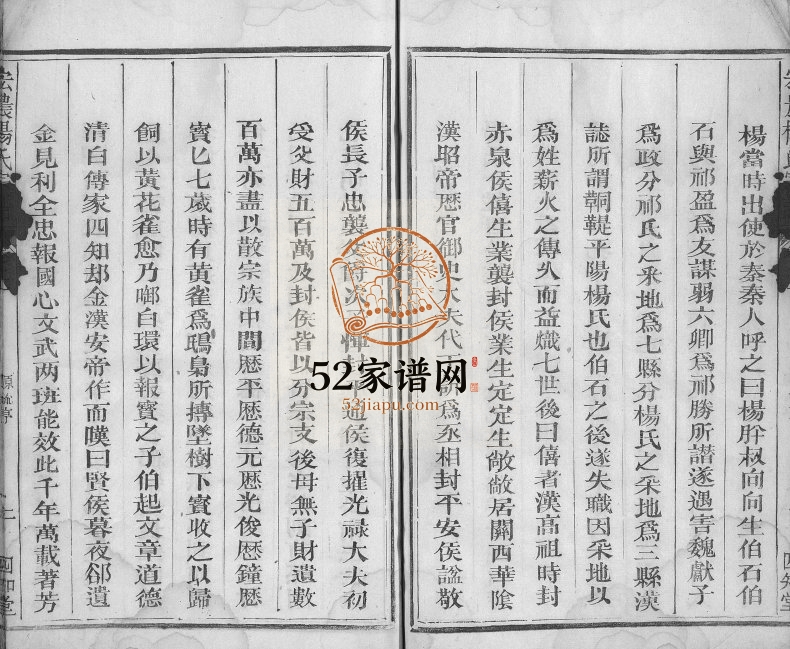 楊當時出使於泰秦人呼之曰楊肸叔向向生伯石伯
石與祁盈爲友謀弱六卿爲祁勝所譖遂遇害魏獻子
爲政分祁氏之采地爲七縣分楊氏之采地爲三縣漢
誌所謂銅鞮平陽楊氏也伯石之後遂失職因采地以
爲姓薪火之傳久而益熾七世後曰僖者漢高祖時封
赤泉侯僖生業襲封侯業生定定生敞敝居關西華陰
漢昭帝歷官御史大夫代 爲丞相封平安侯諡敬
侯長子忠襲 通侯復擢光祿大夫初
受父財五百萬及封侯皆以分宗支後母無子財遺數
百萬亦盡以散宗族中間歷平歷德元歷光俊歷鐘歷
寶匕七歲時有黃雀爲鴟梟所摶墜樹下寶收之以歸
飼以黃花雀愈乃啣白環以報寶之子伯起文章道德
清白傳家四知却金漢安帝作而嘆曰賢侯暮夜卻遺
金見利全忠報國心文武两班能效此千年萬載著芳
四知堂
52家谱网
52jiapu.com